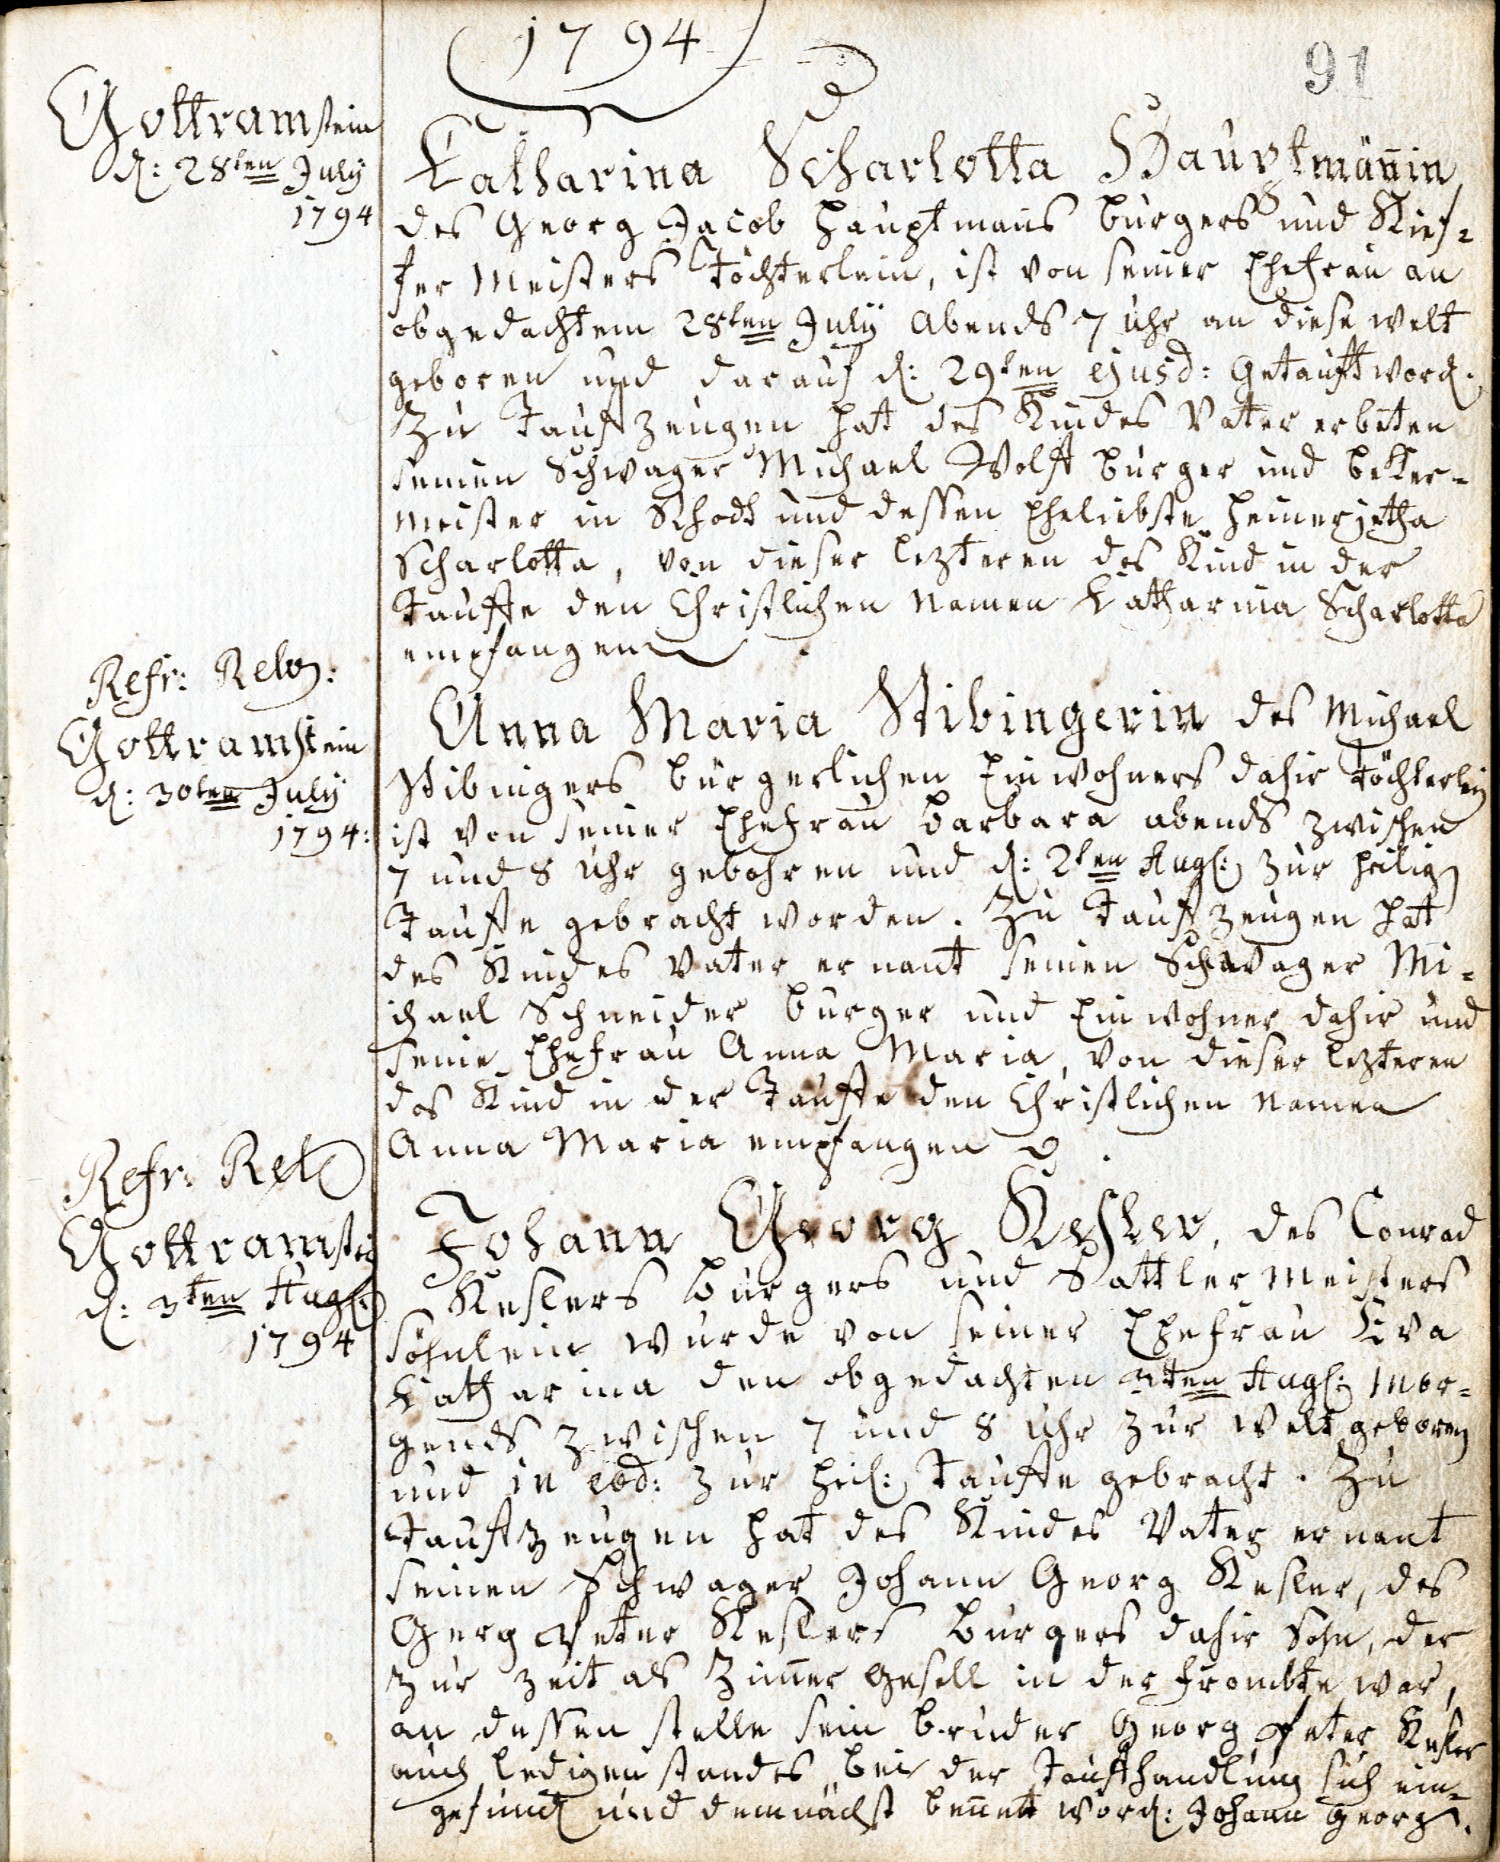 1794
91
Gottramstein
d: 28ten July
1794
Catharina Scharlotta Hauptmännin,
des Georg Jacob Hauptmans burgers und Kief=
fer Meisters Töchterlein, ist von seiner Ehefrau an
obgedachtem 28ten July Abends 7 uhr an diese welt
geboren und darauf d: 29ten ejusd: Getauft word.
Zu Taufzeugen hat des Kindes Vater erbeten
seinen Schwager Michael Wolff burger und beker=
meister in Schodt und dessen Eheliebste Heinerjetha
Scharlotta, von dieser lezteren das Kind in der
Tauffe den Christlichen Namen Catharina Scharlotta
empfangen.
Refr: Relg:
Gottramstein
d: 30ten July
1794:
Anna Maria Stibingerin des Michael
Stibingers bürgerlichen Einwohners dahir Töchterlein
ist von seiner Ehefrau Barbara abends zwischen
7 und 8 uhr gebohren und d: 2ten Aug: zur heilig
Tauffe gebracht worden. Zu Taufzeugen hat
des Kindes Vater ernant seinen Schwager Mi=
chael Schneider burger und Einwohner dahir und
seine Ehefrau Anna Maria, von dieser lezteren
das Kind in der Tauffe den Christlichen Namen
Anna Maria empfangen
Refr: Rel
Gottramstein
d: 3ten Aug:
1794
Johann Georg Kesler, des Conrad
Keslers burgers und Sattler Meisters
söhnlein wurde von seiner Ehefrau Eva
Catharina den obgedachten 3ten Aug: mor=
gends zwischen 7 und 8 uhr zur welt geboren
und in eod: zur heil: Tauffe gebracht. Zu
Taufzeugen hat des Kindes Vater ernant
seinen Schwager Johann Georg Kesler, des
Gerg Peter Keslers burgers dahir Sohn, der
zur zeit als Zimer Gesell in der frombte war,
an dessen stelle sein bruder Georg Peter Kesler
auch ledigen standes, bei der Taufhandlung sich ein=
gefund und demnächst benent word: Johann Georg.